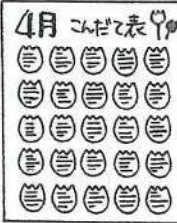 4月 こんだて表